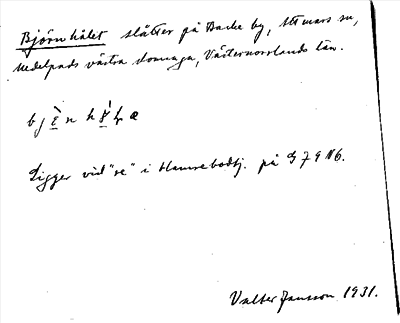 Björnhålet slåtter på Backe by, Attmars sn,
Medelpads västra domsaga, Västernorrlands län.
Ligger vid "se" i Hamrebodtj. på G 79 N6.
Valter Jansson 1931.